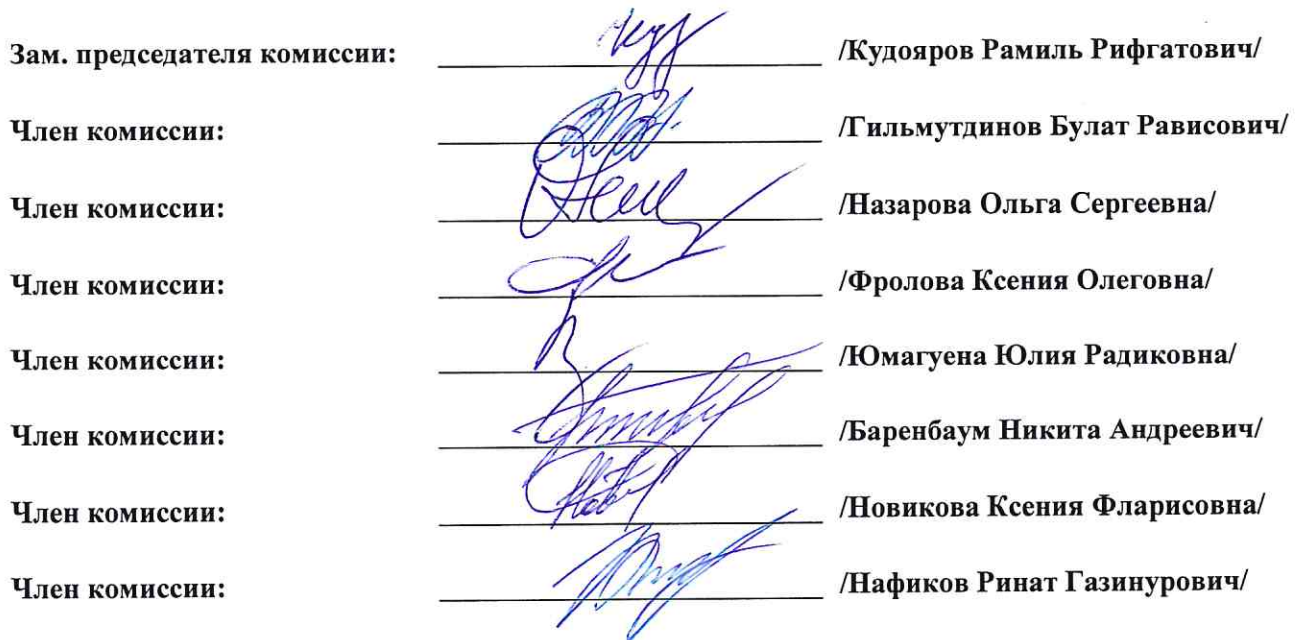 Зам. председателя комиссии: /Кудояров Рамиль Рифгатович/
Член комиссии: /Гильмутдинов Булат Рависович/
Член комиссии: /Назарова Ольга Сергеевна/
Член комиссии: /Фролова Ксения Олеговна/
Член комиссии: /Юмагуена Юлия Радиковна/
Член комиссии: /Баренбаум Никита Андреевич/
Член комиссии: /Новикова Ксения Фларисовна/
Член комиссии: /Нафиков Ринат Газинурович/